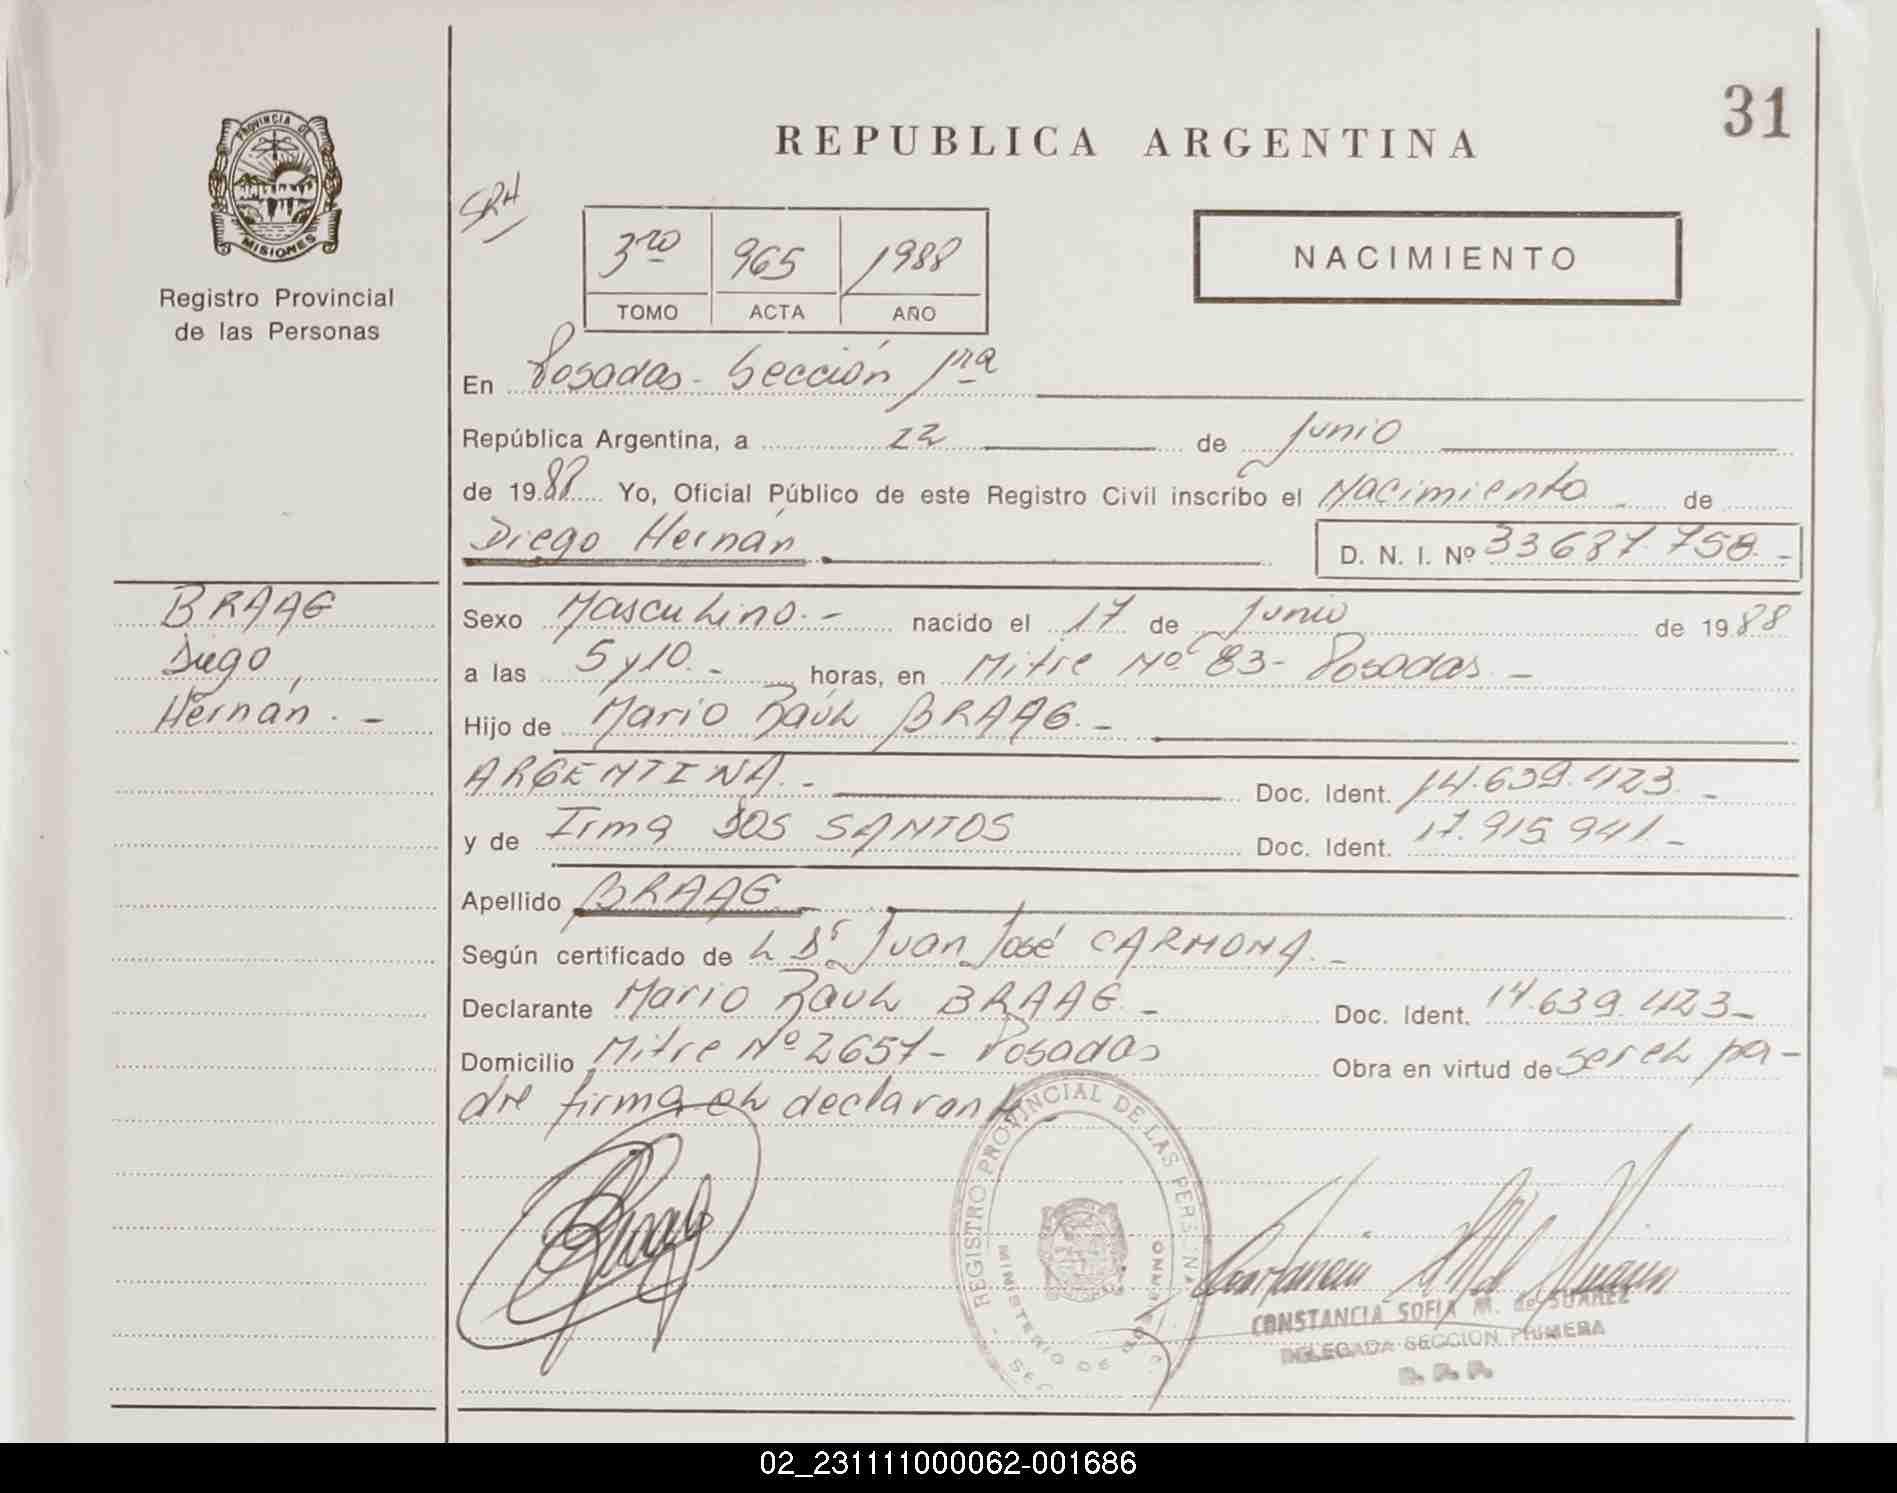 31
REPUBLICA ARGENTINA
PROVINCIA DE
MISIONES
Registro Provincial
de las Personas
SRH
3ro 965 1988
TOMO ACTA AÑO
NACIMIENTO
En Posadas - Sección 1ra
República Argentina, a 22 de Junio
de 1988 Yo, Oficial Público de este Registro Civil inscribo el Nacimiento de
Diego Hernán D. N. I. Nº 33687.758.-
BRAAG
Diego
Hernán.-
Sexo Masculino.- nacido el 17 de Junio de 1988
a las 5 y 10.- horas, en Mitre Nº 83- Posadas.-
Hijo de Mario Raúl BRAAG.-
ARGENTINA.- Doc. Ident. 14.639.423.-
y de Irma DOS SANTOS Doc. Ident. 17.915.941.-
Apellido BRAAG.-
Según certificado de l Dr. Juan José CARMONA.-
Declarante Mario Raul BRAAG.- Doc. Ident. 14.639.423-
Domicilio Mitre Nº 2657- Posadas Obra en virtud de ser el pa-
dre firma el declarante
REGISTRO PROVINCIAL DE LAS PERSONAS
MINISTERIO DE GOBIERNO
CONSTANCIA SOFIA M. de SUAREZ
DELEGADA SECCION PRIMERA
R. P. P.
02_231111000062-001686